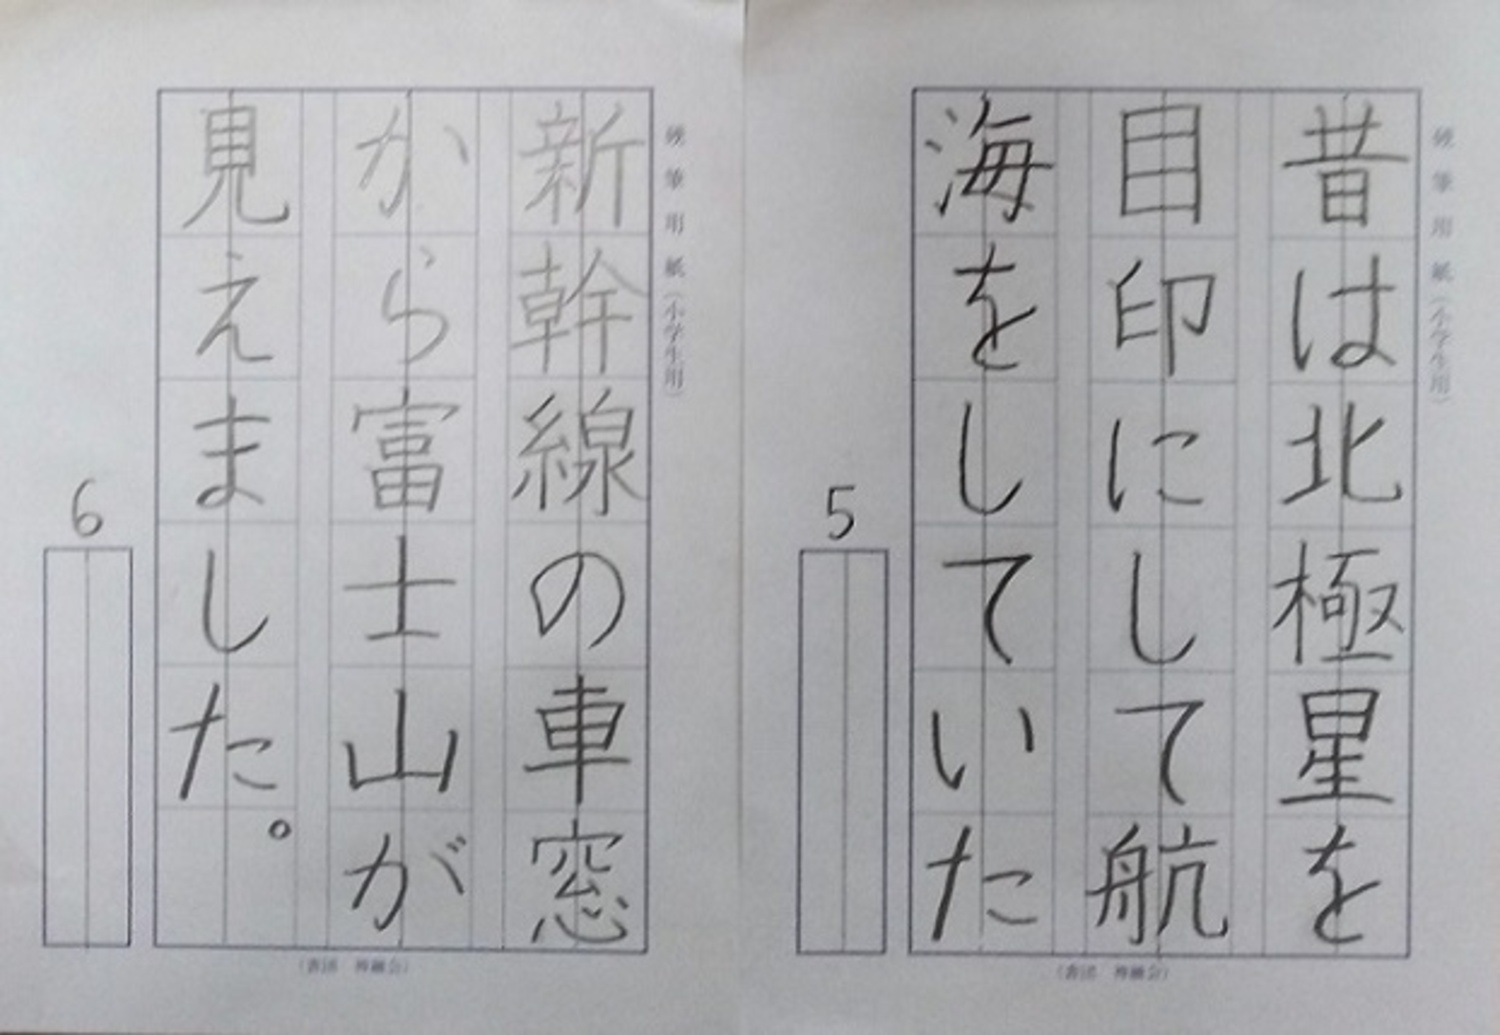 硬筆用紙（小学生用）
昔は北極星を
目印にして航
海をしていた
5
硬筆用紙（小学生用）
新幹線の車窓
から富士山が
見えました。
6